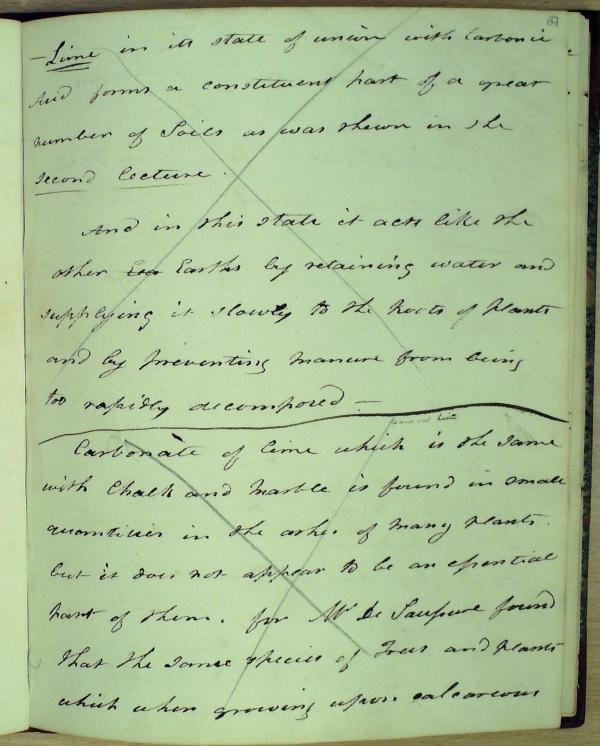 61
— Lime in its state of union with Carbonic
Acid forms a constituent part of a great
number of Soils as was shewn in the
second lecture.
And in this state it acts like the
other Ear Earths by retaining water and
supplying it slowly to the Roots of plants
and by preventing manure from being
too rapidly decomposed —
Carbonate of lime which is the same
with Chalk and Marble is found in small
quantities in the ashes of many plants.
but it does not appear to be an essential
part of them. for Mr De Saussure found
that the same species of Trees and plants
which when growing upon calcareous